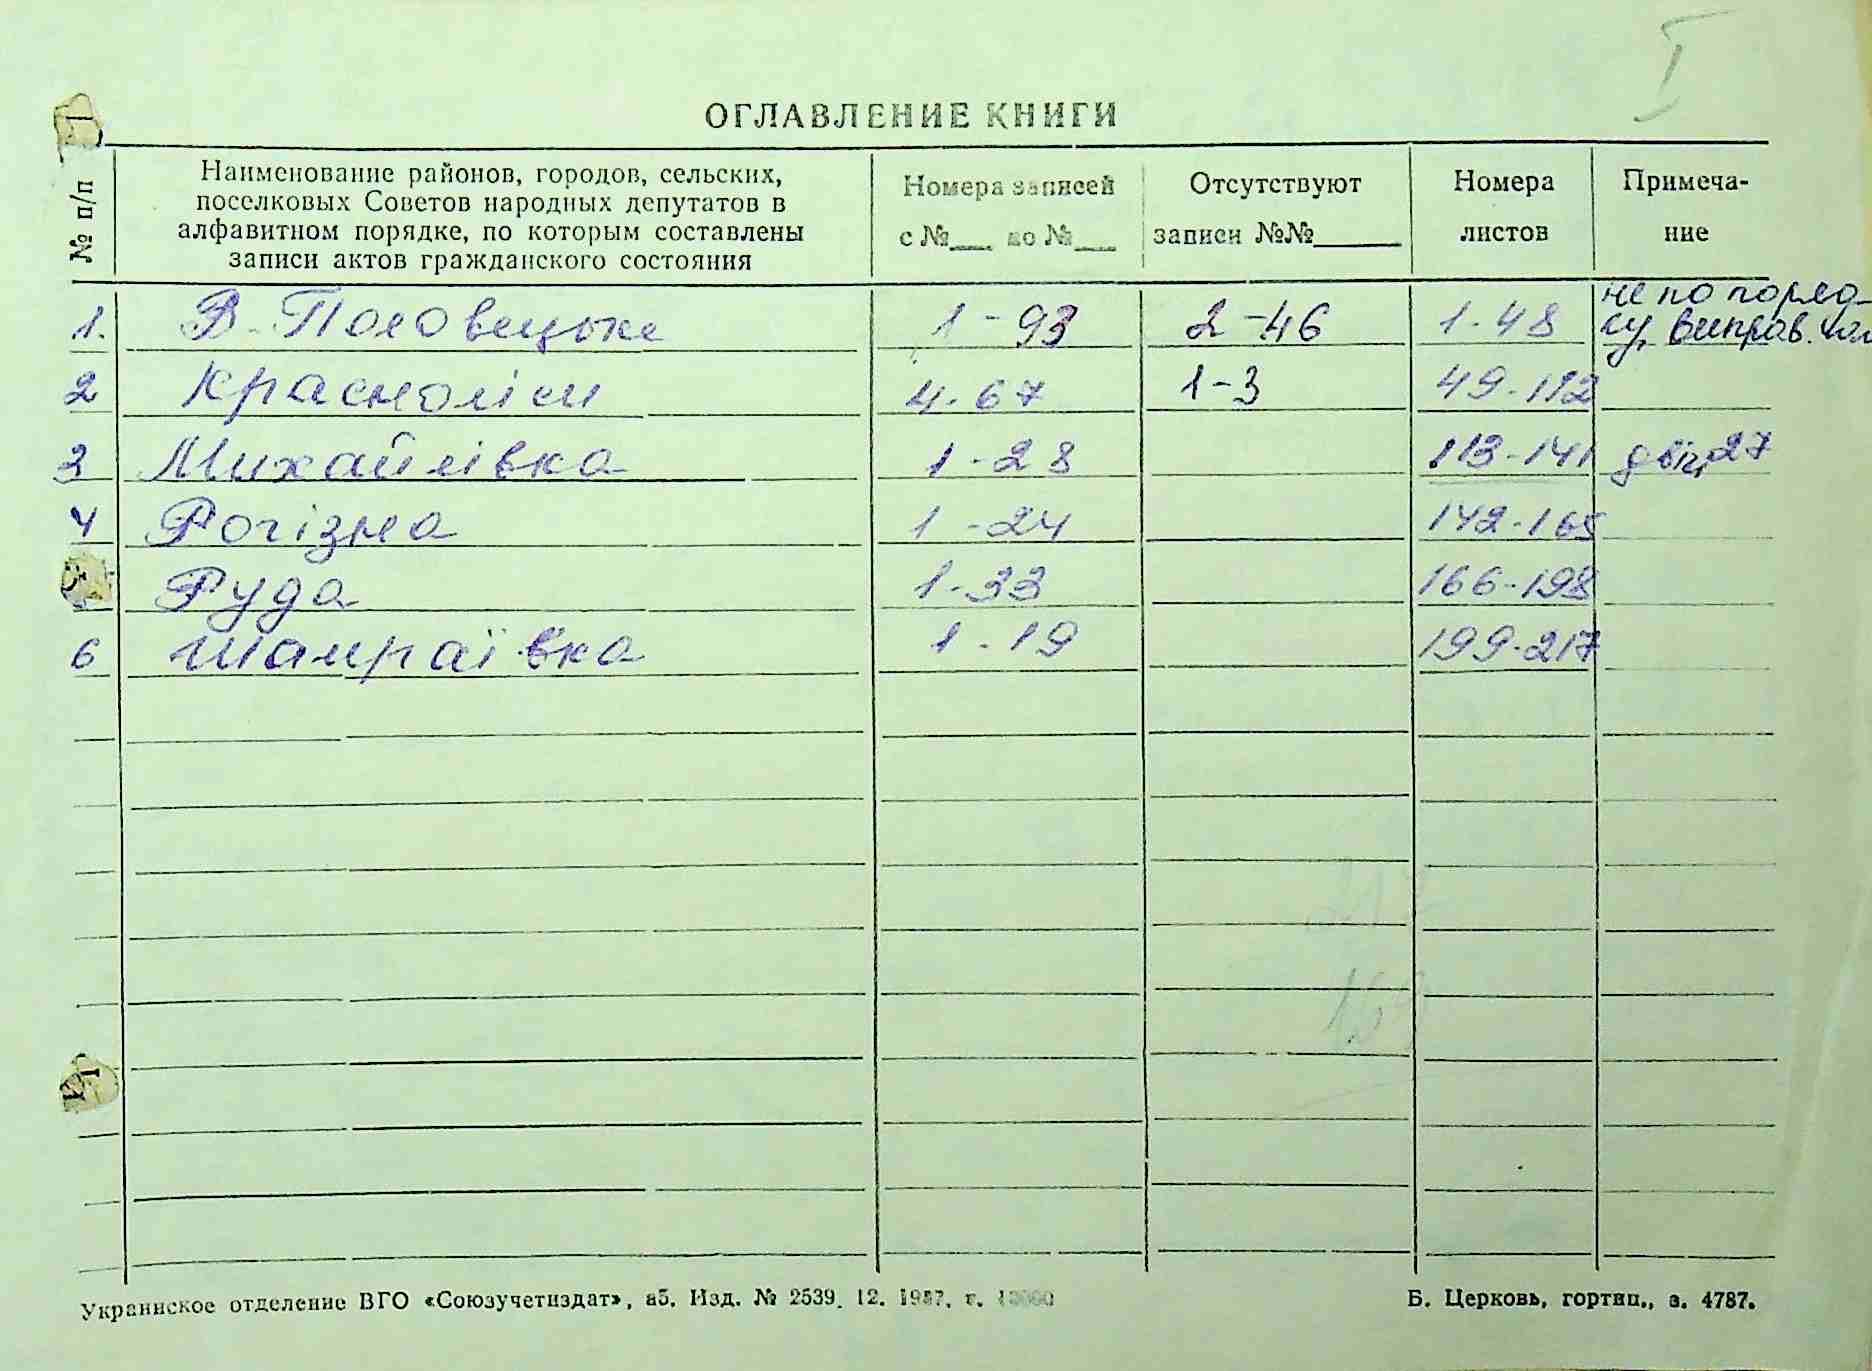 I
ОГЛАВЛЕНИЕ КНИГИ
№ п/п
Наименование районов, городов, сельских,
поселковых Советов народных депутатов в
алфавитном порядке, по которым составлены
записи актов гражданского состояния
Номера записей
с №___ по №___
Отсутствуют
записи №№______
Номера
листов
Примеча-
ние
1. В-Половецьке 1-93 2-46 1-48 не по поряд-
ку, виправ.
2 Красноліси 4-67 1-3 49-112
3 Михайлівка 1-28 113-141 двічі 27
4 Рогізна 1-24 142-165
Руда 1-33 166-198
6 Шамраївка 1-19 199-217
217
Украинское отделение ВГО «Союзучетиздат», з5. Изд. № 2539. 12. 1987. г.
Б. Церковь, гортип., з. 4787.